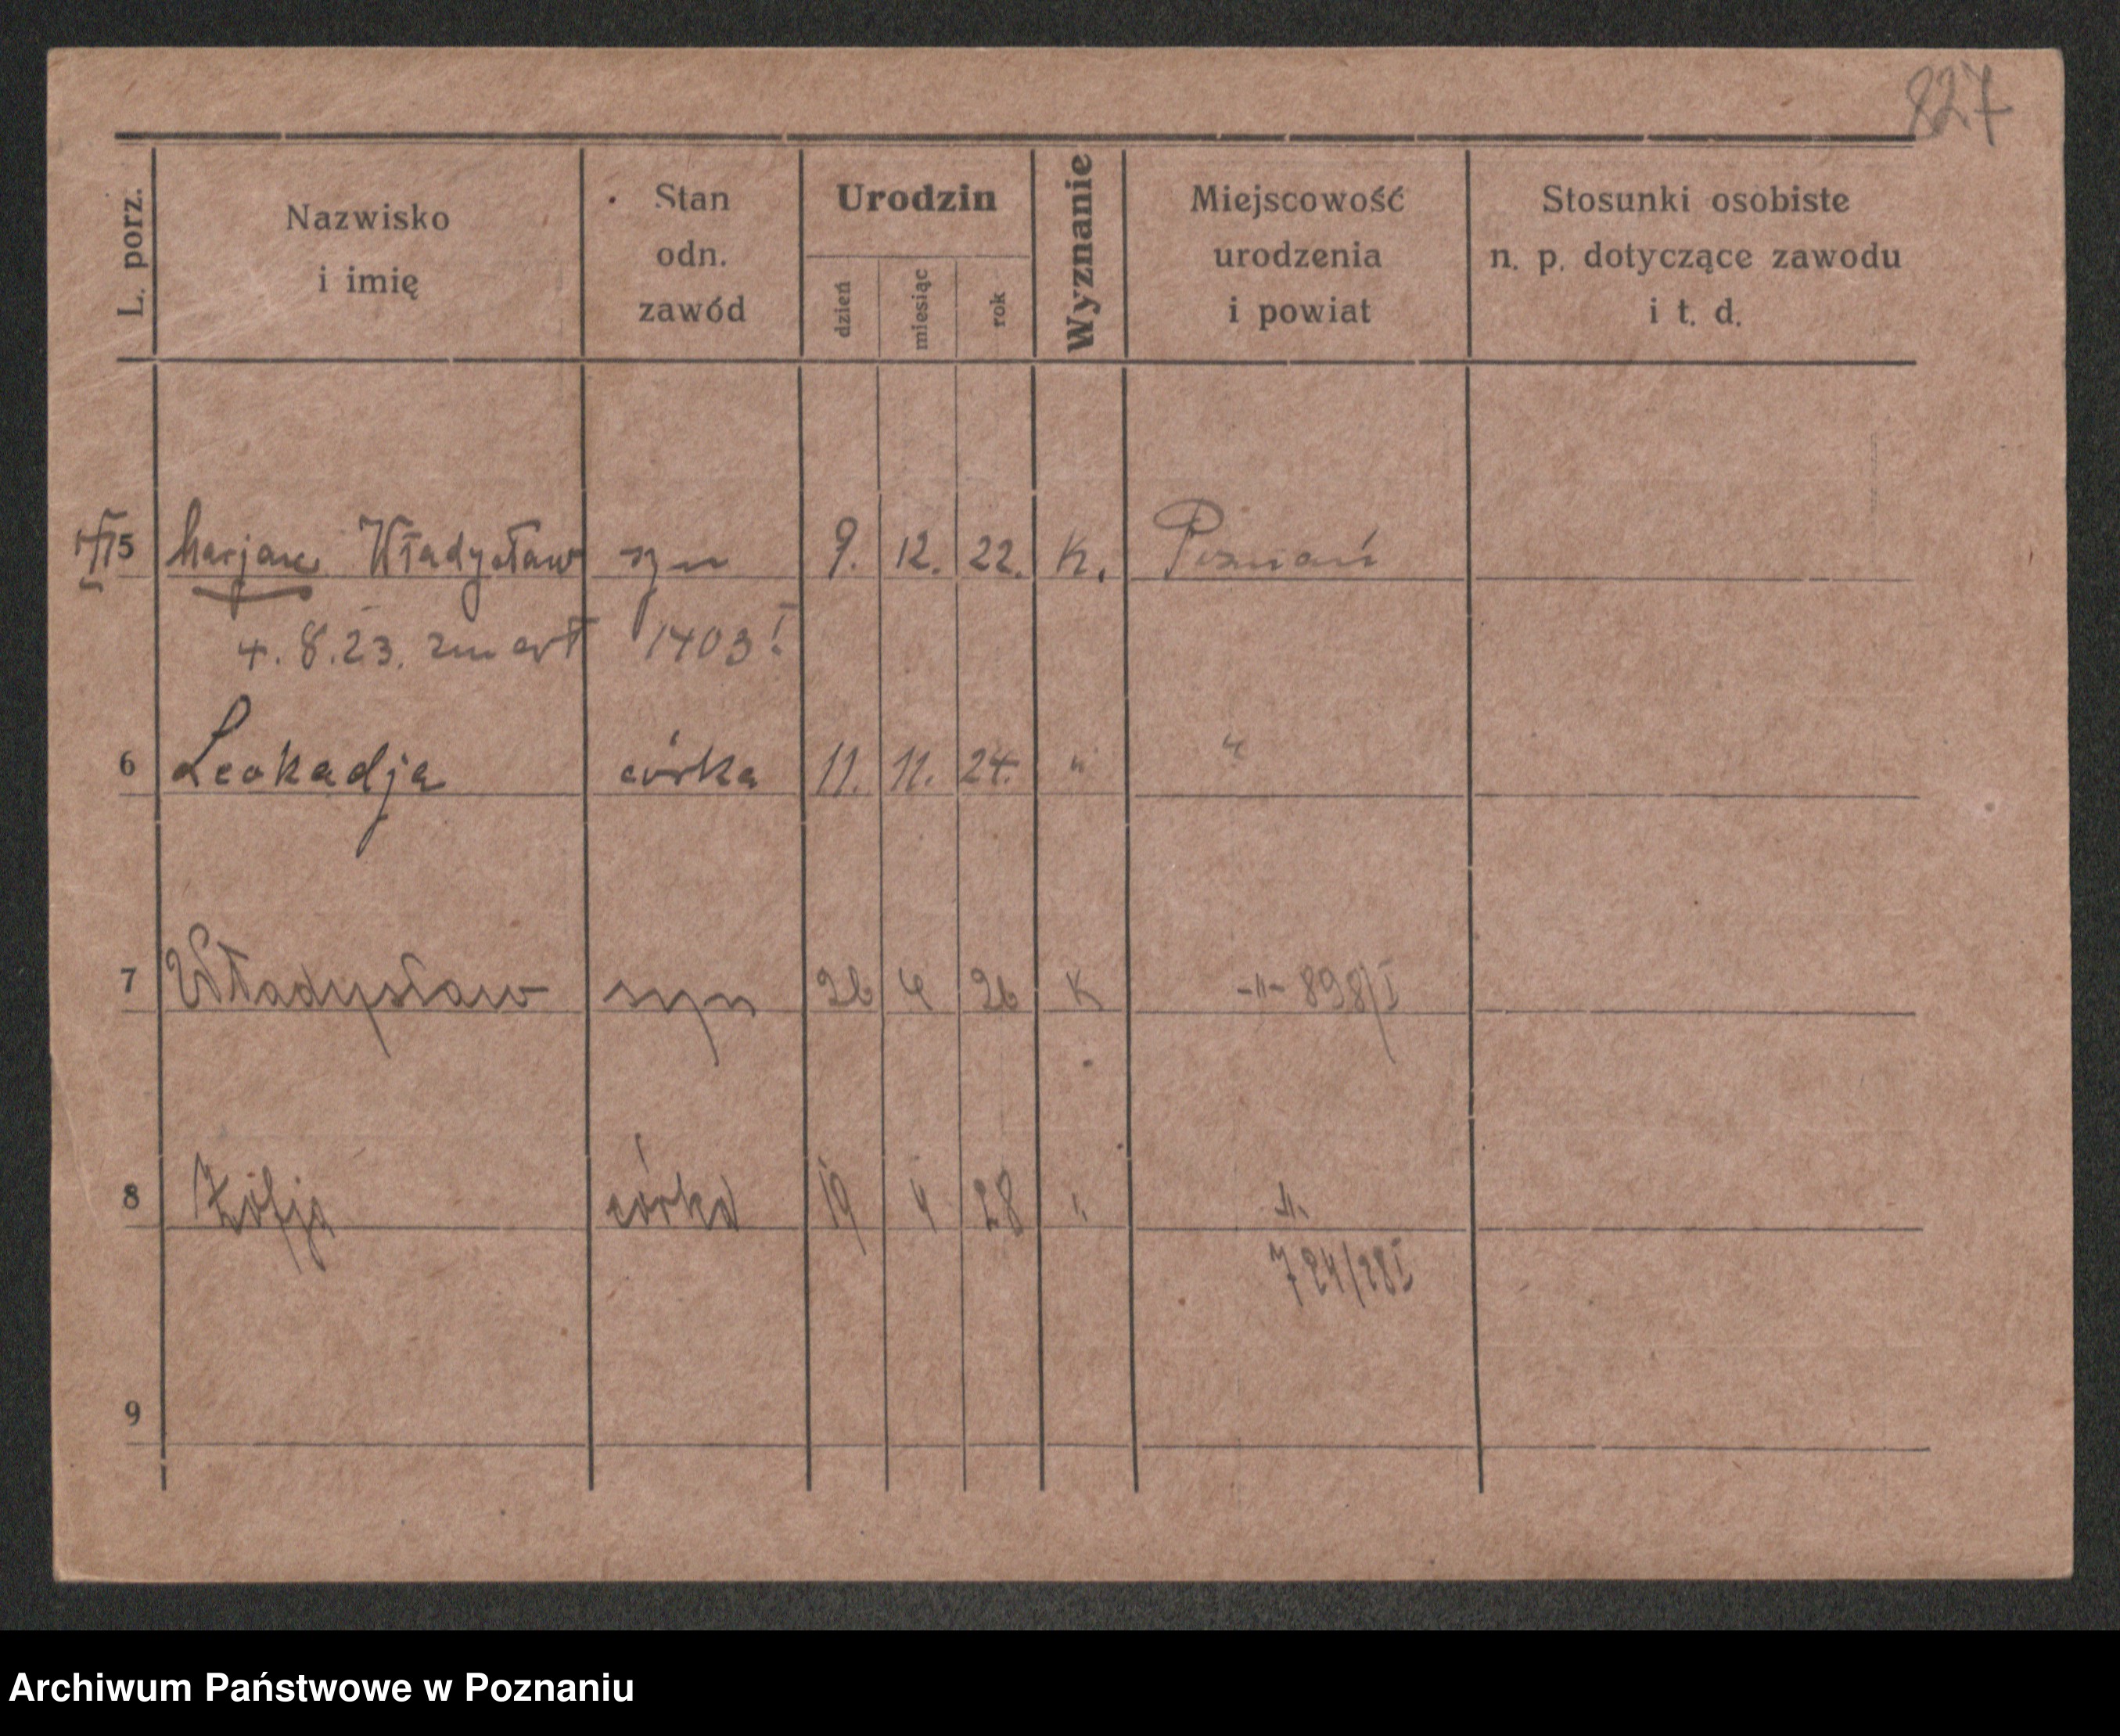 827
L. porz.
Nazwisko
i imię
Stan
odn.
zawód
Urodzin
dzień
miesiąc
rok
Wyznanie
Miejscowość
urodzenia
i powiat
Stosunki osobiste
n. p. dotyczące zawodu
i t. d.
5 Marjan Władysław syn 9. 12. 22. K. Poznań
4. 8. 23. zmarł 1403 I
6 Leokadja córka 11. 11. 24. " "
7 Władysław syn 26 4 26 K -"- 898/I
8 Zofja córka 19 4 28 " -"-
724/28 I
9
Archiwum Państwowe w Poznaniu